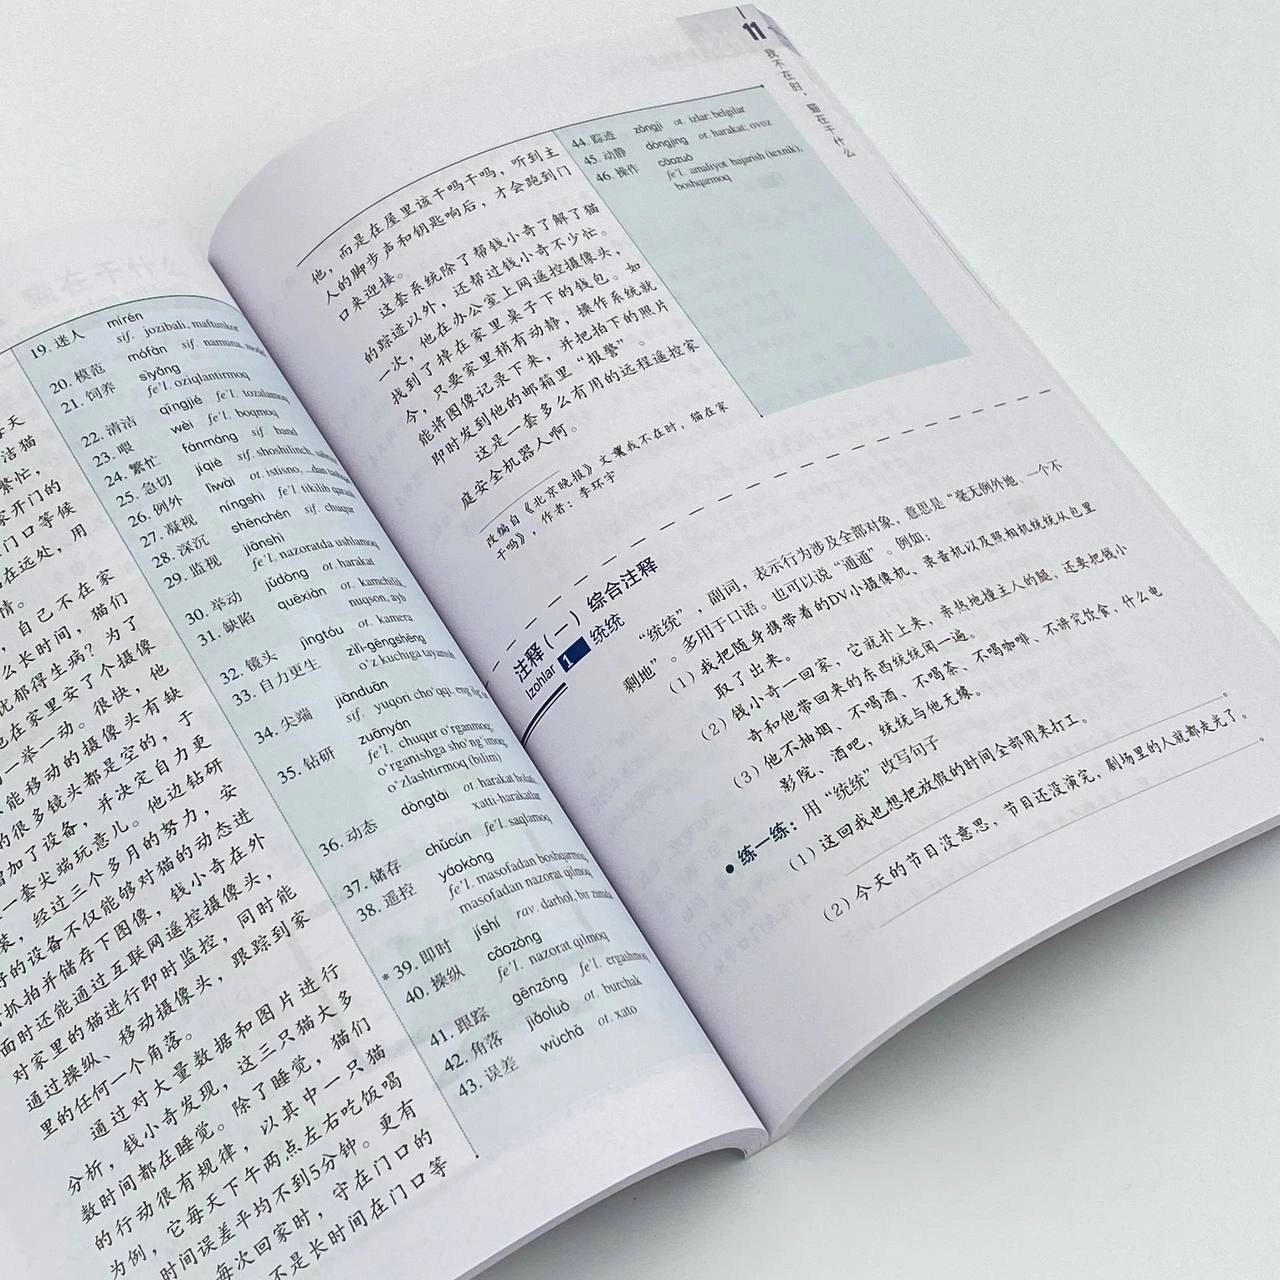 每天
洁猫
繁忙，
家开门的
门口等候
站在远处，用
情。
自己不在家
么长时间，猫们
忧郁得生病？为了
也在家里安了个摄像
的一举一动。很快，他
不能移动的摄像头有缺
的很多镜头都是空的，于
增加了设备，并决定自力更
一套尖端玩意儿。他边钻研
装，经过三个多月的努力，安
好的设备不仅能够对猫的动态进
行抓拍并储存下图像，钱小奇在外
面时还能通过互联网遥控摄像头，
对家里的猫进行即时监控，同时能
通过操纵、移动摄像头，跟踪到家
里的任何一个角落。
通过对大量数据和图片进行
分析，钱小奇发现，这三只猫大多
数时间都在睡觉。除了睡觉，猫们
的行动很有规律，以其中一只猫
为例，它每天下午两点左右吃饭喝
时间误差平均不到5分钟。更有
每次回家时，守在门口的
不是长时间在门口等
19. 迷人 mírén
sif. jozibali, maftunkor
20. 模范 mófàn sif. namuna, model
21. 饲养 sìyǎng
fe'l. oziqlantirmoq
22. 清洁 qīngjié fe'l. tozalamoq
23. 喂 wèi fe'l. boqmoq
24. 繁忙 fánmáng sif. band
25. 急切 jíqiè sif. shoshilinch,
26. 例外 lìwài ot. istisno, ...dan
27. 凝视 níngshì fe'l. tikilib
28. 深沉 shēnchén sif. chuqur
29. 监视 jiānshì
fe'l. nazoratda ushlamoq
30. 举动 jǔdòng ot. harakat
31. 缺陷 quēxiàn ot. kamchilik,
nuqson, ayb
32. 镜头 jìngtóu ot. kamera
33. 自力更生 zìlì-gēngshēng
o'z kuchiga tayanish
34. 尖端 jiānduān
sif. yuqori cho'qqi,
35. 钻研 zuānyán
fe'l. chuqur o'rganmoq,
o'rganishga sho'ng'imoq,
o'zlashtirmoq (bilim)
36. 动态 dòngtài ot. harakat
xatti-harakatlar
37. 储存 chǔcún fe'l. saqlamoq
38. 遥控 yáokòng
fe'l. masofadan boshqarmoq,
masofadan nazorat qilmoq
*39. 即时 jíshí rav. darhol, bir zumda
40. 操纵 cāozòng
fe'l. nazorat qilmoq
41. 跟踪 gēnzōng fe'l. ergashmoq
42. 角落 jiǎoluò ot. burchak
43. 误差 wùchā ot. xato
11
我不在时，猫在干什么
他，而是在屋里该干吗干吗，听到主
人的脚步声和钥匙响后，才会跑到门
口来迎接。
这套系统除了帮钱小奇了解了猫
的踪迹以外，还帮过钱小奇不少忙。
一次，他在办公室上网遥控摄像头，
找到了掉在家里桌子下的钱包。如
今，只要家里稍有动静，操作系统就
能将图像记录下来，并把拍下的照片
即时发到他的邮箱里“报警”。
这是一套多么有用的远程遥控家
庭安全机器人啊。
改编自《北京晚报》文章《我不在时，猫在家
干吗》，作者：李环宇
44. 踪迹 zōngjì ot. izlar; belgilar
45. 动静 dòngjing ot. harakat; ovoz
46. 操作 cāozuò
fe'l. amaliyot bajarish (texnik),
boshqarmoq
注释（一）综合注释
Izohlar 1 统统
“统统”，副词，表示行为涉及全部对象，意思是“毫无例外地、一个不
剩地”。多用于口语。也可以说“通通”。例如：
（1）我把随身携带着的DV小摄像机、录音机以及照相机统统从包里
取了出来。
（2）钱小奇一回家，它就扑上来，亲热地撞主人的腿，还要把钱小
奇和他带回来的东西统统闻一遍。
（3）他不抽烟、不喝酒、不喝茶、不喝咖啡、不讲究饮食，什么电
影院、酒吧，统统与他无缘。
● 练一练：用“统统”改写句子
（1）这回我也想把放假的时间全部用来打工。
。
（2）今天的节目没意思，节目还没演完，剧场里的人就都走光了。
。